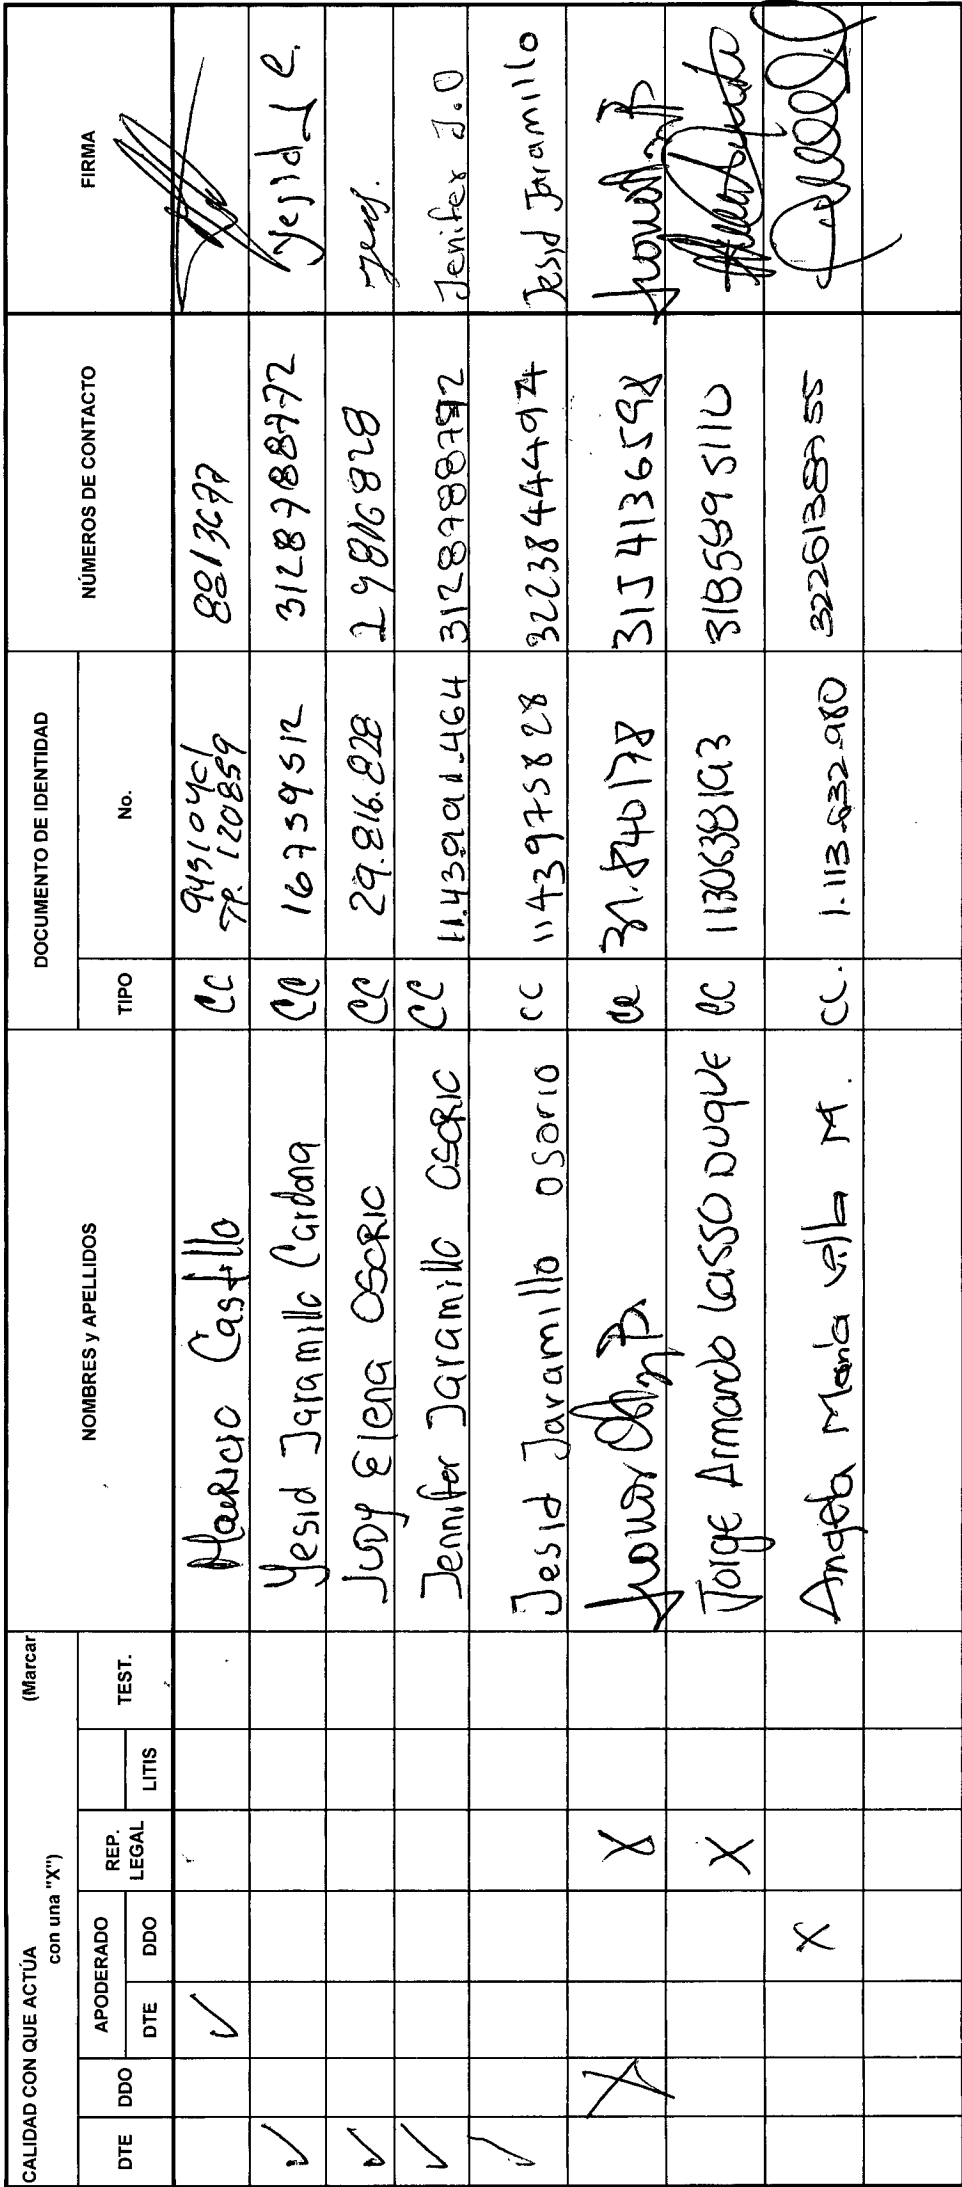 CALIDAD CON QUE ACTÚA (Marcar con una "X")
DTE DDO APODERADO DTE DDO REP. LEGAL LITIS TEST.
NOMBRES y APELLIDOS
DOCUMENTO DE IDENTIDAD
TIPO No.
NÚMEROS DE CONTACTO
FIRMA
✓ Mauricio Castillo CC TP. 120859 8813677
✓ Yesid Jaramillo Cardona CC 16739512 3128788772 Yesid J C.
✓ Judy Elena OSORIO CC 29.816.828 29816828
✓ Jennifer Jaramillo OSORIO CC 3128788792 Jenifer J.O
✓ Jesid Jaramillo Osorio CC 1143975828 3223844494 Jesid Jaramillo
X X CC 31.840178 3154136598
X Jorge Armando Lasso Duque CC 1130638193
X Angela María Villa M. CC. 1.113.632.980